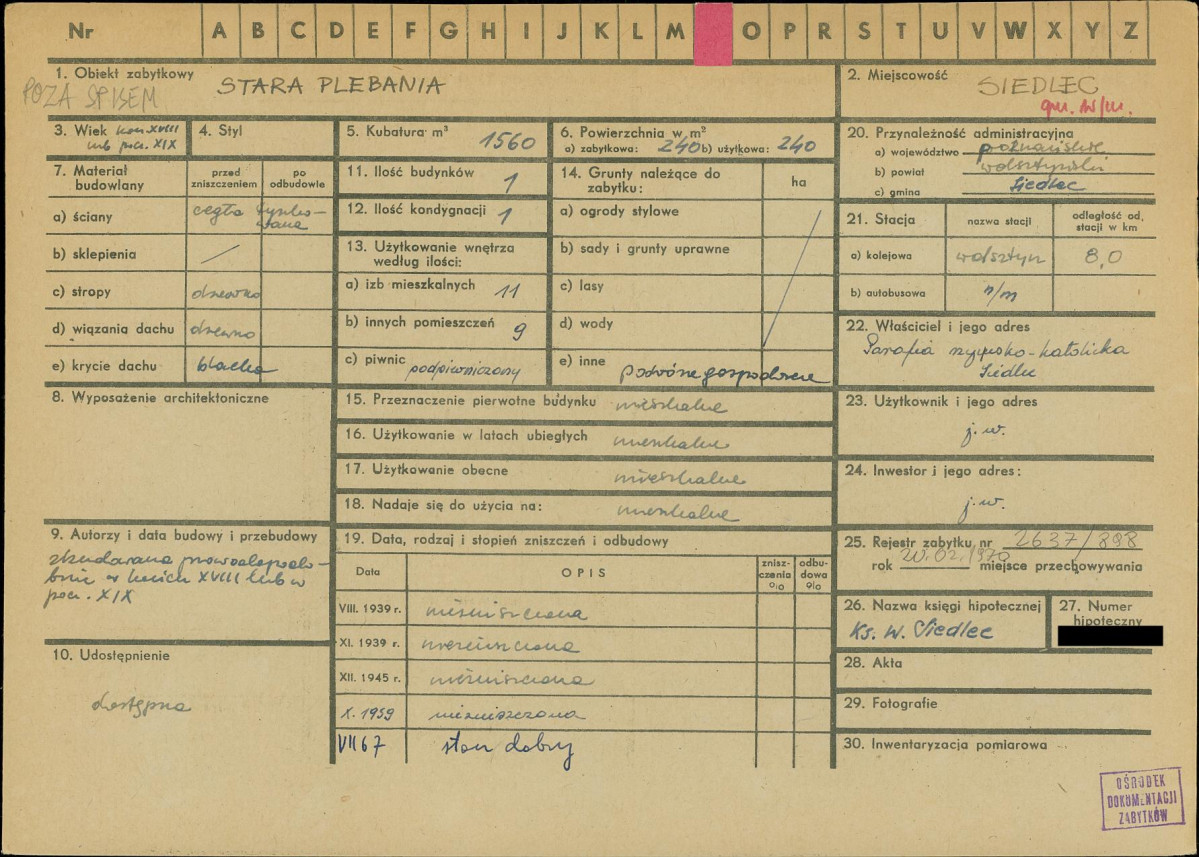 Nr A B C D E F G H I J K L M O P R S T U V W X Y Z
1. Obiekt zabytkowy
STARA PLEBANIA
POZA SPISEM
2. Miejscowość
SIEDLEC
gm. w/m.
3. Wiek kon XVIII
lub pocz. XIX
4. Styl
5. Kubatura m³
1560
6. Powierzchnia w m²
a) zabytkowa: 240 b) użytkowa: 240
20. Przynależność administracyjna
a) województwo poznańskie
b) powiat wolsztyński
c) gmina Siedlec
7. Materiał budowlany
przed zniszczeniem
po odbudowie
a) ściany cegła tynko-
wana
b) sklepienia /
c) stropy drewno
d) wiązania dachu drewno
e) krycie dachu blacha
11. Ilość budynków 1
12. Ilość kondygnacji 1
13. Użytkowanie wnętrza
według ilości:
a) izb mieszkalnych 11
b) innych pomieszczeń 9
c) piwnic podpiwniczony
14. Grunty należące do
zabytku:
ha
a) ogrody stylowe
b) sady i grunty uprawne
c) lasy
d) wody
e) inne podwórze gospodarcze
21. Stacja
nazwa stacji
odległość od.
stacji w km
a) kolejowa wolsztyn 8,0
b) autobusowa n/m
22. Właściciel i jego adres
Parafia rzymsko-katolicka
Siedlec
8. Wyposażenie architektoniczne
15. Przeznaczenie pierwotne budynku mieszkalne
16. Użytkowanie w latach ubiegłych mieszkalne
17. Użytkowanie obecne mieszkalne
18. Nadaje się do użycia na: mieszkalne
23. Użytkownik i jego adres
j. w.
24. Inwestor i jego adres:
j. w.
9. Autorzy i data budowy i przebudowy
zbudowana prawdopodo-
bnie w końcu XVIII lub w
pocz. XIX
10. Udostępnienie
dostępna
19. Data, rodzaj i stopień zniszczeń i odbudowy
Data
OPIS
znisz-
czenia
%
odbu-
dowa
%
VIII. 1939 r. niezniszczona
XI. 1939 r. niezniszczona
XII. 1945 r. niezniszczona
X. 1959 niezniszczona
VII 67 stan dobry
25. Rejestr zabytku nr 2637/898
rok 20.02.1970 miejsce przechowywania
26. Nazwa księgi hipotecznej
Ks. W. Siedlec
27. Numer
hipoteczny
28. Akta
29. Fotografie
30. Inwentaryzacja pomiarowa
OŚRODEK
DOKUMENTACJI
ZABYTKÓW